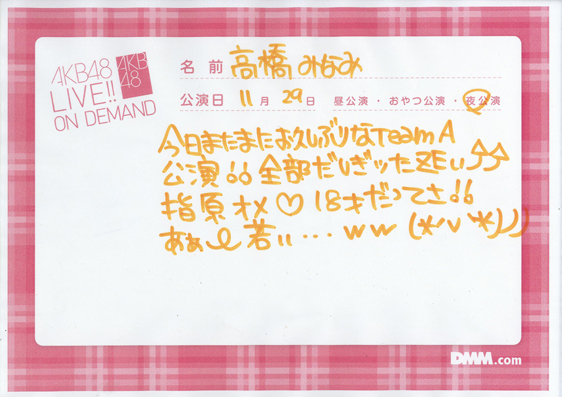 AKB48
LIVE!!
ON DEMAND
AKB
48
名前 高橋みなみ
公演日 11月 29日 昼公演・おやつ公演・夜公演
今日またまたお久しぶりなTeamA
公演!! 全部だしぎったZEぃ⤴⤴
指原オメ♡18才だってさ!!
あぁ〜若ぃ…ww (*'v'*)))
DMM.com